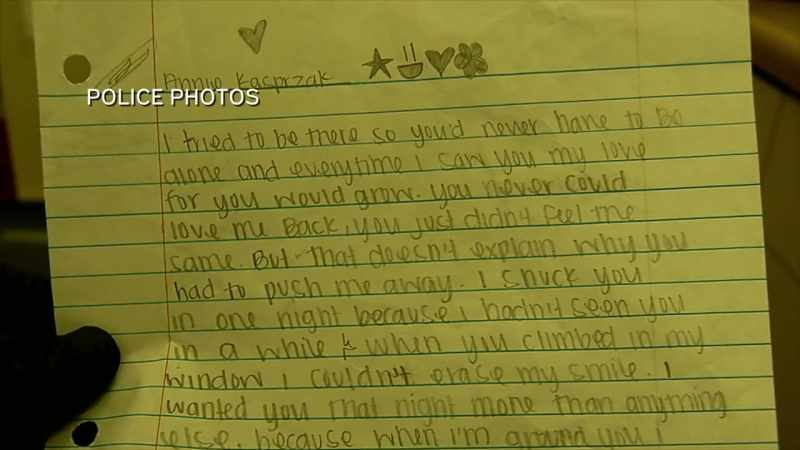 Annie Kasprzak
POLICE PHOTOS
I tried to be there so you'd never have to Be
alone and everytime i saw you my love
for you would grow. you never could
love me Back, you just didn't feel the
same. But that doesn't explain why you
had to push me away. I snuck you
in one night because i hadn't seen you
in a while & when you climbed in my
window I couldn't erase my smile. I
wanted you that night more than anything
else, because when I'm around you i